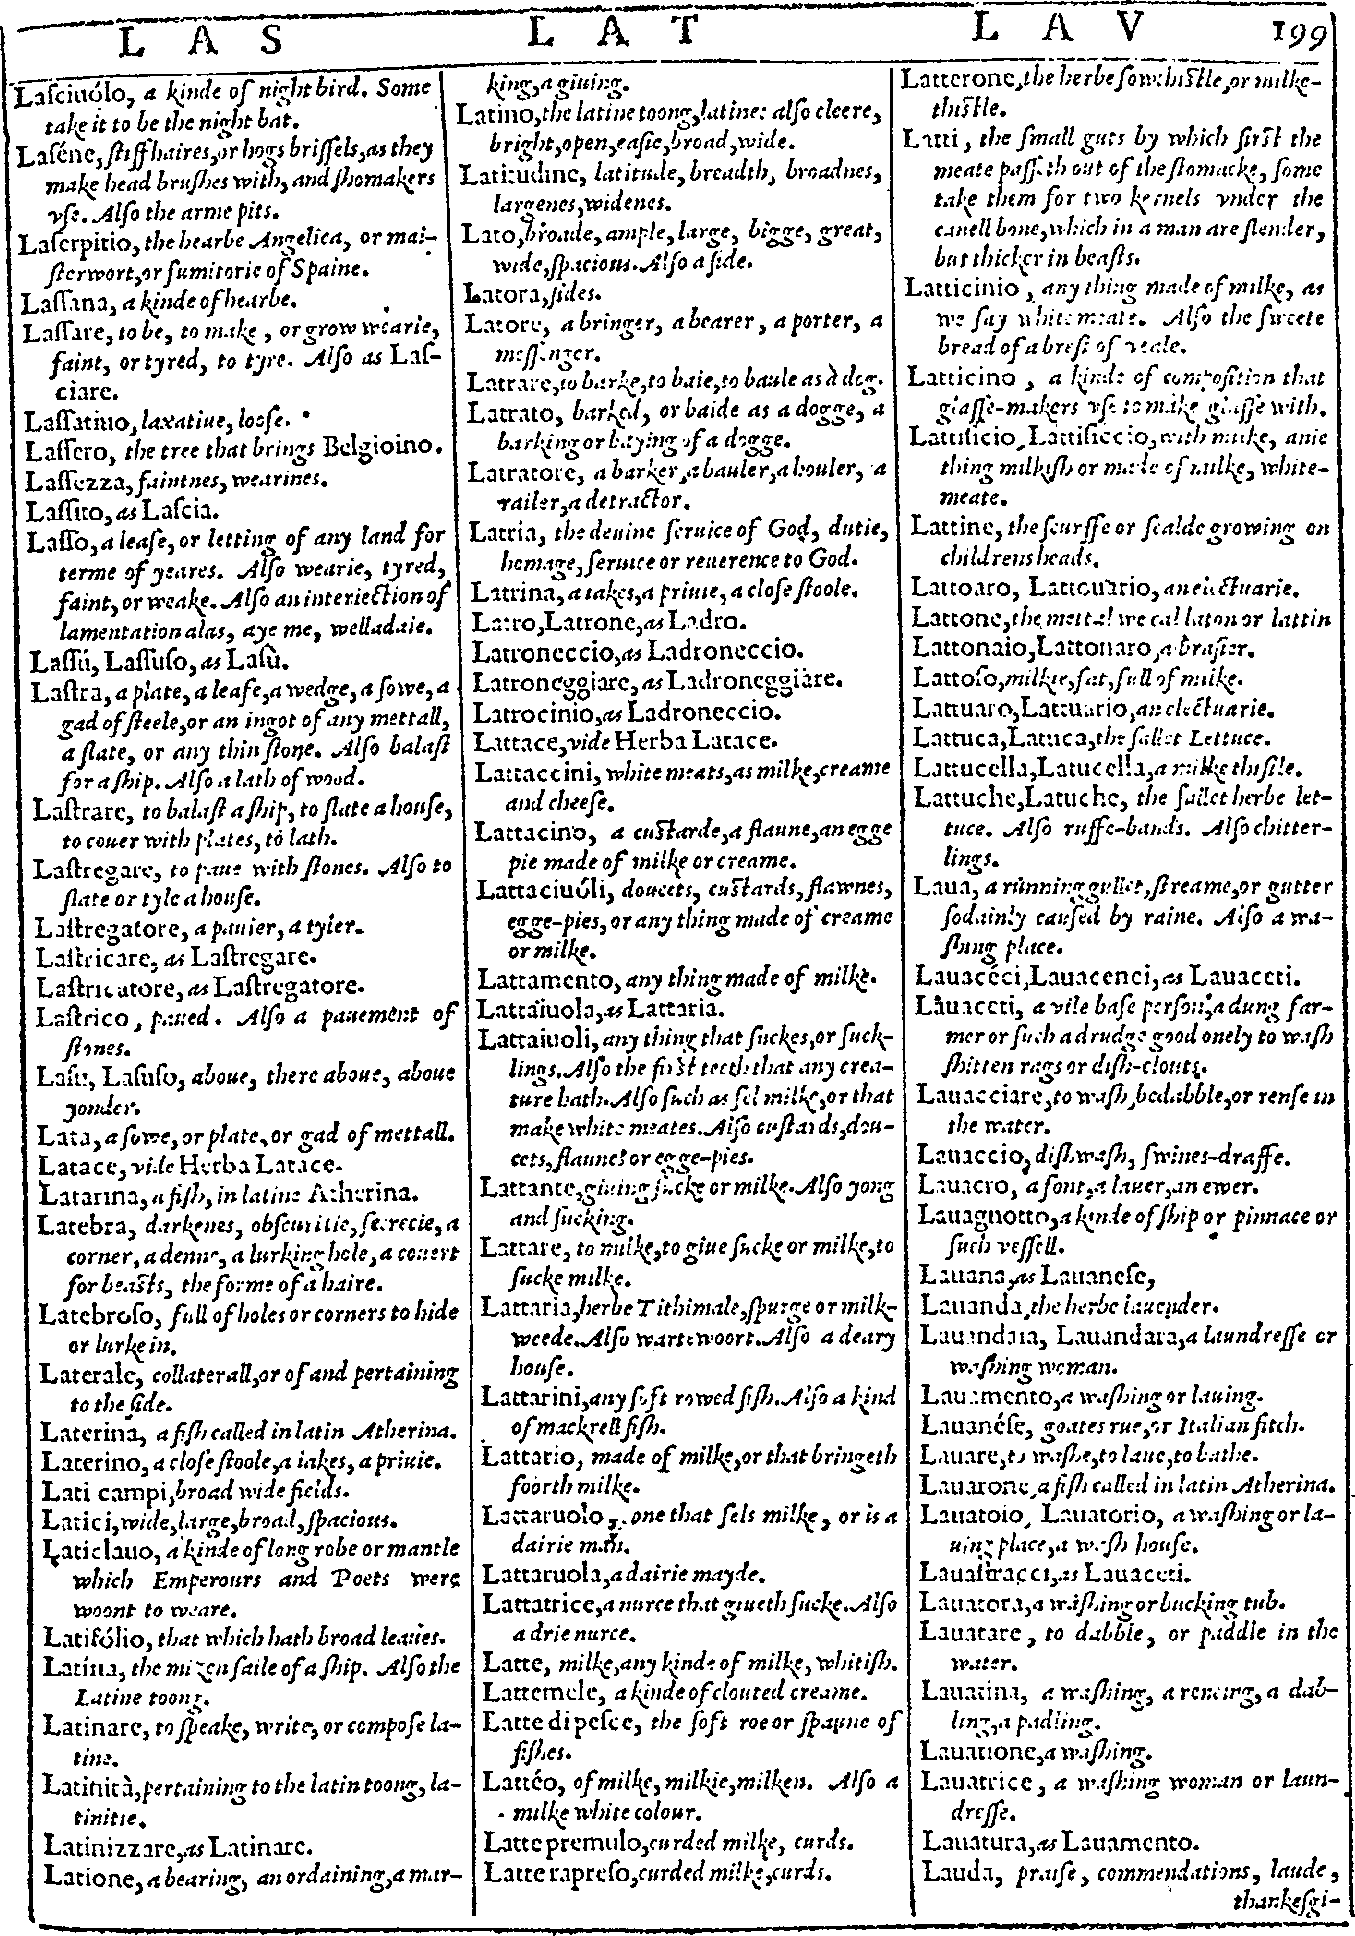 LAS LAT LAV 199
Laſciuólo, a kinde of night bird. Some
take it to be the night bat.
Laséne, ſtiff haires, or hogs briſſels, as they
make head bruſhes with, and ſhomakers
vſe. Alſo the arme pits.
Laſerpitio, the hearbe Angelica, or mai-
ſterwort, or fumitorie of Spaine.
Laſſana, a kinde of hearbe.
Laſſare, to be, to make, or grow wearie,
faint, or tyred, to tyre. Alſo as Laſ-
ciare.
Laſſatiuo, laxatiue, looſe.
Laſſero, the tree that brings Belgioino.
Laſſezza, faintnes, wearines.
Laſſito, as Laſcia.
Laſſo, a leaſe, or letting of any land for
terme of yeares. Alſo wearie, tyred,
faint, or weake. Alſo an interiection of
lamentation alas, aye me, welladaie.
Laſſú, Laſſuſo, as Laſù.
Laſtra, a plate, a leafe, a wedge, a ſowe, a
gad of ſteele, or an ingot of any mettall,
a ſlate, or any thin ſtone. Alſo balaſt
for a ſhip. Alſo a lath of wood.
Laſtrare, to balaſt a ſhip, to ſlate a houſe,
to couer with plates, to lath.
Laſtregare, to paue with ſtones. Alſo to
ſlate or tyle a houſe.
Laſtregatore, a pauier, a tyler.
Laſtricare, as Laſtregare.
Laſtricatore, as Laſtregatore.
Laſtrico, paued. Alſo a pauement of
ſtones.
Laſu, Laſuſo, aboue, there aboue, aboue
yonder.
Lata, a ſowe, or plate, or gad of mettall.
Latace, vide Herba Latace.
Latarina, a fiſh, in latine Atherina.
Latebra, darkenes, obſcuritie, ſecrecie, a
corner, a denne, a lurking hole, a couert
for beaſts, the forme of a haire.
Latebroſo, full of holes or corners to hide
or lurke in.
Laterale, collaterall, or of and pertaining
to the ſide.
Laterina, a fiſh called in latin Atherina.
Laterino, a cloſe ſtoole, a iakes, a priuie.
Lati campi, broad wide fields.
Latici, wide, large, broad, ſpacious.
Laticlauo, a kinde of long robe or mantle
which Emperours and Poets were
woont to weare.
Latifólio, that which hath broad leaues.
Latína, the mizen ſaile of a ſhip. Alſo the
Latine toong.
Latinare, to ſpeake, write, or compoſe la-
tine.
Latinità, pertaining to the latin toong, la-
tinitie.
Latinizzare, as Latinare.
Latione, a bearing, an ordaining, a mar-
king, a giuing.
Latino, the latine toong, latine: alſo cleere,
bright, open, eaſie, broad, wide.
Latitudine, latitude, breadth, broadnes,
largenes, widenes.
Lato, broade, ample, large, bigge, great,
wide, ſpacious. Alſo a ſide.
Latora, ſides.
Latore, a bringer, a bearer, a porter, a
meſſenger.
Latrare, to barke, to baie, to baule as a dog.
Latrato, barked, or baide as a dogge, a
barking or baying of a dogge.
Latratore, a barker, a bauler, a houler, a
railer, a detractor.
Latria, the deuine ſeruice of God, dutie,
homage, ſeruice or reuerence to God.
Latrina, a iakes, a priuie, a cloſe ſtoole.
Latro, Latrone, as Ladro.
Latroneccio, as Ladroneccio.
Latroneggiare, as Ladroneggiare.
Latrocinio, as Ladroneccio.
Lattace, vide Herba Latace.
Lattaccini, white meats, as milke, creame
and cheeſe.
Lattacino, a cuſtarde, a flaune, an egge
pie made of milke or creame.
Lattaciuóli, doucets, cuſtards, flawnes,
egge-pies, or any thing made of creame
or milke.
Lattamento, any thing made of milke.
Lattaiuola, as Lattaria.
Lattaiuoli, any thing that ſuckes, or ſuck-
lings. Alſo the firſt teeth that any crea-
ture hath. Alſo ſuch as ſel milke, or that
make white meates. Alſo cuſtards, dou-
cets, flaunes or egge-pies.
Lattante, giuing ſucke or milke. Alſo yong
and ſucking.
Lattare, to milke, to giue ſucke or milke, to
ſucke milke.
Lattaria, herbe Tithimale, ſpurge or milk-
weede. Alſo wartewoort. Alſo a deary
houſe.
Lattarini, any ſoft rowed fiſh. Alſo a kind
of mackrell fiſh.
Lattario, made of milke, or that bringeth
foorth milke.
Lattaruolo, one that ſels milke, or is a
dairie man.
Lattaruola, a dairie mayde.
Lattatrice, a nurce that giueth ſucke. Alſo
a drie nurce.
Latte, milke, any kinde of milke, whitiſh.
Lattemele, a kinde of clouted creame.
Latte di peſce, the ſoft roe or ſpawne of
fiſhes.
Lattéo, of milke, milkie, milken. Alſo a
milke white colour.
Latte premulo, curded milke, curds.
Latte rapreſo, curded milke, curds.
Latterone, the herbe ſowthiſtle, or milke-
thiſtle.
Latti, the ſmall guts by which firſt the
meate paſſeth out of the ſtomacke, ſome
take them for two kernels vnder the
canell bone, which in a man are ſlender,
but thicker in beaſts.
Latticinio, any thing made of milke, as
we ſay white meate. Alſo the ſweete
bread of a breſt of veale.
Latticino, a kinde of compoſition that
glaſſe-makers vſe to make glaſſe with.
Lattificio, Lattificcio, with milke, anie
thing milkiſh or made of milke, white-
meate.
Lattine, the ſcurffe or ſcalde growing on
childrens heads.
Lattoaro, Lattouario, an electuarie.
Lattone, the mettal we cal laton or lattin
Lattonaio, Lattonaro, a braſier.
Lattoſo, milkie, fat, full of milke.
Lattuaro, Lattuario, an electuarie.
Lattuca, Latuca, the ſallet Lettuce.
Lattucella, Latucella, a milke thiſtle.
Lattuche, Latuche, the ſallet herbe let-
tuce. Alſo ruffe-bands. Alſo chitter-
lings.
Laua, a running gullet, ſtreame, or gutter
ſodainly cauſed by raine. Alſo a wa-
ſhing place.
Lauacéci, Lauacenci, as Lauaceti.
Lauaceti, a vile baſe perſon, a dung far-
mer or ſuch a drudge good onely to waſh
ſhitten rags or diſh-clouts.
Lauacciare, to waſh, bedabble, or renſe in
the water.
Lauaccio, diſhwaſh, ſwines-draffe.
Lauacro, a font, a lauer, an ewer.
Lauagnotto, a kinde of ſhip or pinnace or
ſuch veſſell.
Lauana, as Lauaneſe,
Lauanda, the herbe lauender.
Lauandaia, Lauandara, a laundreſſe or
waſhing woman.
Lauamento, a waſhing or lauing.
Lauanéſe, goates rue, or Italian fitch.
Lauare, to waſhe, to laue, to bathe.
Lauarone, a fiſh called in latin Atherina.
Lauatoio, Lauatorio, a waſhing or la-
uing place, a waſh houſe.
Lauaſtracci, as Lauaceti.
Lauatora, a waſhing or bucking tub.
Lauatare, to dabble, or paddle in the
water.
Lauatina, a waſhing, a rencing, a dab-
ling, a padling.
Lauatione, a waſhing.
Lauatrice, a waſhing woman or laun-
dreſſe.
Lauatura, as Lauamento.
Lauda, praiſe, commendations, laude,
thankeſgi-